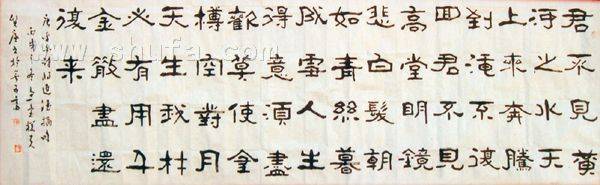 君不見黃
河之水天
上來奔騰
到海不復
回君不見
高堂明鏡
悲白髮朝
如青絲暮
成雪人生
得意須盡
歡莫使金
樽空對月
天生我材
必有用千
金散盡還
復来
www.shufa.com